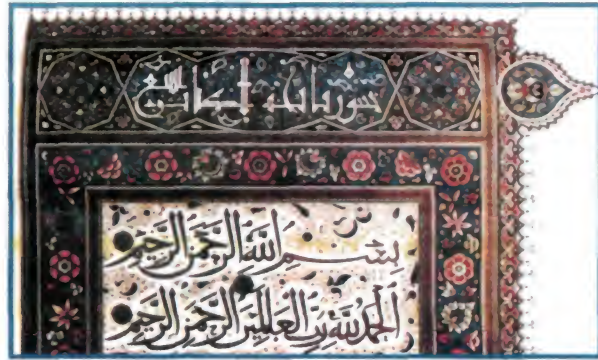 سورة فاتحة الكتاب
بِسْمِ اللَّهِ الرَّحْمَنِ الرَّحِيمِ
الْحَمْدُ لِلَّهِ رَبِّ الْعَلَمِينَ الرَّحْمَنِ الرَّحِيمِ